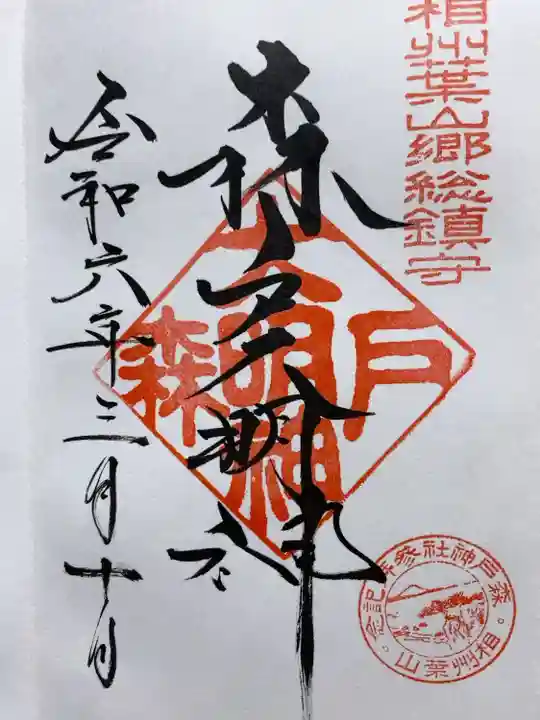 相州葉山郷総鎮守
森戸大明神
森戸大明神
令和六年三月十日
森戸神社参拝記念
相州葉山